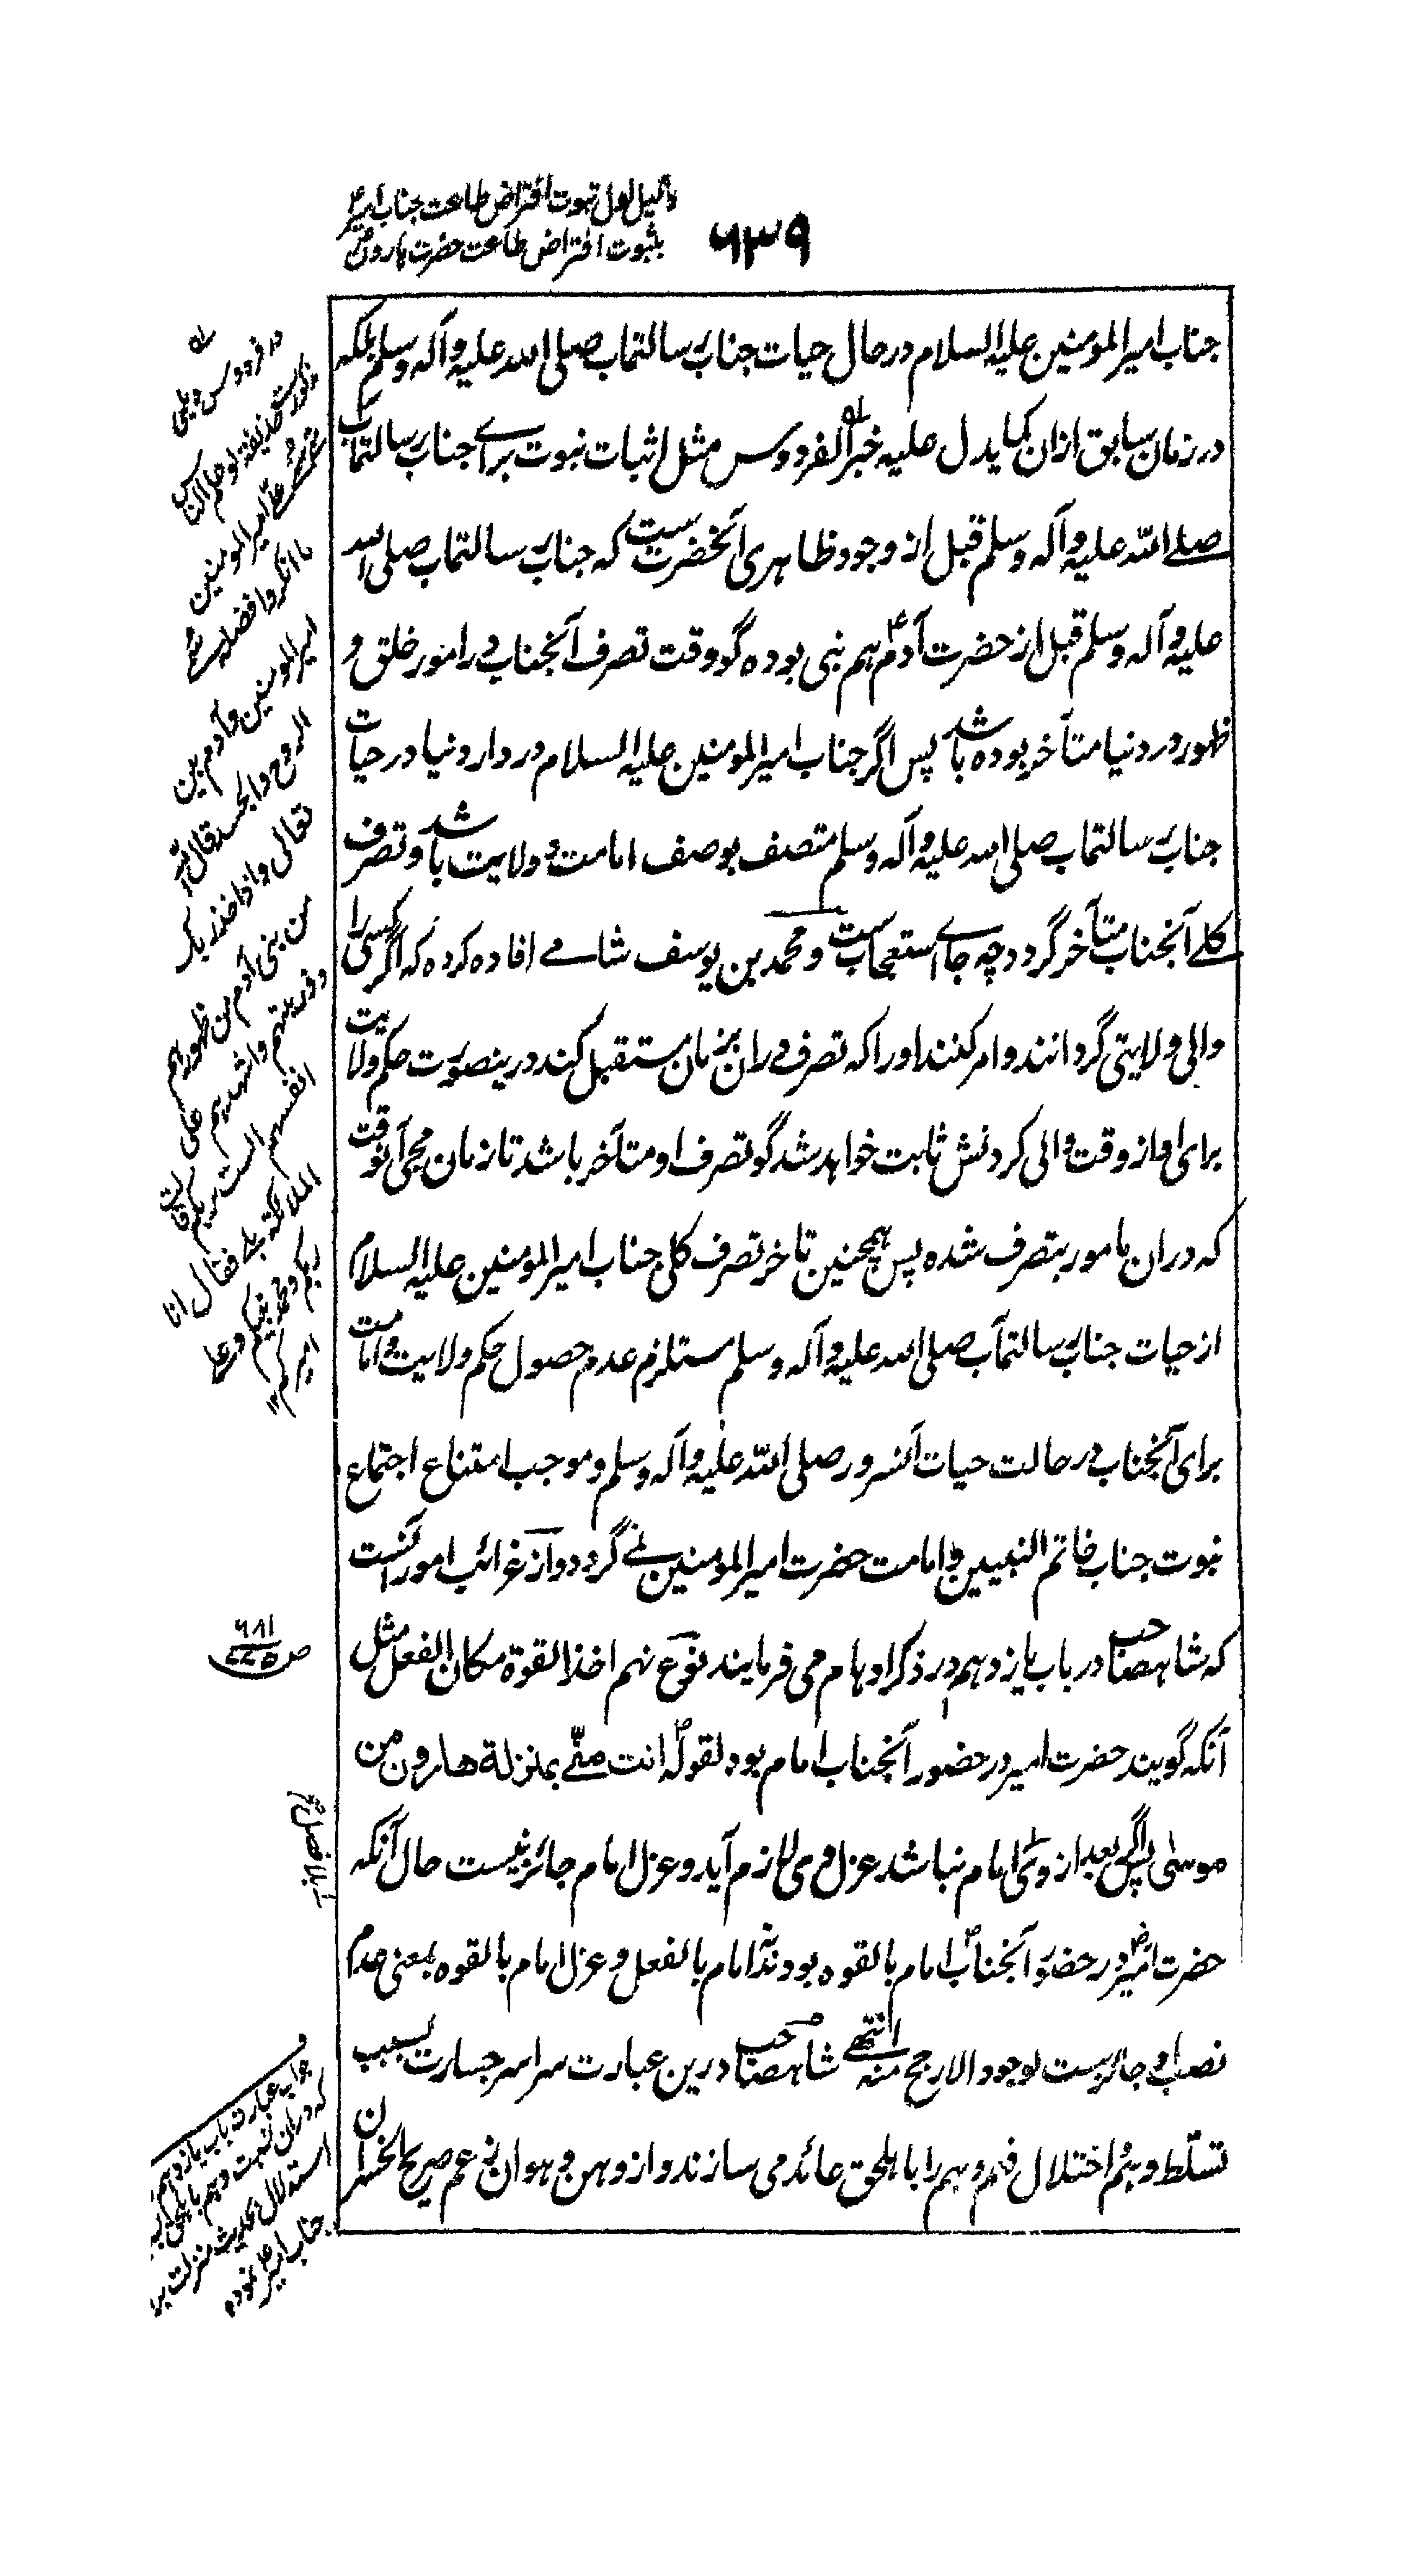 دلیل اول ثبوت افتراض طاعت جناب امیرؑ
بثبوت افتراض طاعت حضرت هارونؑ
۶۳۹
جناب امیرالمومنین علیه السلام در حال حیات جناب رسالتماب صلی الله علیه و آله وسلم بلکه
در زمان سابق ازان کما یدل علیه خبر الفردوس مثل اثبات نبوت برای جناب رسالتمآب
صلے الله علیه و آله وسلم قبل از وجود ظاهری آنحضرت ست که جناب رسالتماب صلی الله
علیه و آله وسلم قبل از حضرت آدمؑ هم نبی بوده گو وقت تصرف آنجناب در امور خلق و
ظهور در دنیا متأخر بوده باشد پس اگر جناب امیرالمومنین علیه السلام در دار دنیا در حیات
جناب رسالتماب صلی الله علیه و آله وسلم متصف بوصف امامت و ولایت باشد و تصرف
کلے آنجناب متأخر گردد چه جاے استعجاب ست و محمد بن یوسف شامے افاده کرده که اگر کسی را
والی ولایتی گردانند و امر کنند او را که تصرف دران بزمان مستقبل کند درینصورت حکم ولایت
برای او از وقت والی کردنش ثابت خواهد شد گو تصرف او متأخر باشد تا زمان مجی آنوقت
که دران مامور بتصرف شده پس همچنین تاخر تصرف کلی جناب امیرالمومنین علیه السلام
از حیات جناب رسالتمآب صلی الله علیه و آله وسلم مستلزم عدم حصول حکم ولایت و امامت
برای آنجناب در حالت حیات آنسرور صلی الله علیه و آله وسلم و موجب امتناع اجتماع
نبوت جناب خاتم النبیین و امامت حضرت امیرالمومنین نمے گردد و از غرائب امور آنست
که شاهصاحب در باب یازدهم در ذکر اوهام می فرمایند نوع نهم اخذ القوة مکان الفعل مثل
آنکه گویند حضرت امیر در حضور آنجناب امام بود لقوله انت منّے بمنزلة هارون من
موسی پس اگر بعد از وی امام نباشد عزل وی لازم آید و عزل امام جائز نیست حال آنکه
حضرت امیر در حضور آنجناب امام بالقوه بودند نه امام بالفعل و عزل امام بالقوه بمعنی عدم
نصب او جائزست لوجود الارجح منه انتهے شاهصاحب درین عبارت سراسر جسارت بسبب
تسلّط وهم و اختلال فهم وهم را باهل حق عائد می سازند و از وهن و هوان زعم صریح الخسران
در فردوس دیلمی
مذکورست حذیفة لو علم الناس
متی سمی علی امیرالمومنین
ما انکروا فضله سمی
امیرالمومنین و آدم بین
الروح والجسد قال الله
تعالی و اذ اخذ ربک
من بنی آدم من ظهورهم
ذریتهم و اشهدهم علی
انفسهم الست بربکم قالت
الملائکة بلے فقال انا
ربکم و محمد نبیکم و علی
امیرکم ۱۲
۶۸۱
ص ۷۷۵
بلا فصل
جواب عبارت باب یازدهم
که دران نسبت وهم باهل حق
استدلال بحدیث منزلت بر
جناب امیرؑ نموده